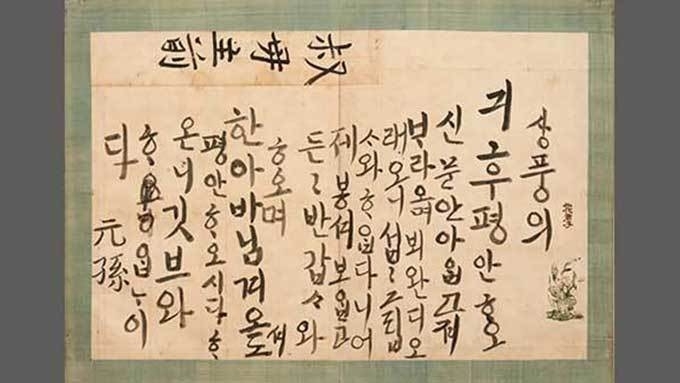 叔母主前
상풍의
긔후평안ᄒᆞ오
신문안아ᄋᆞᆸ고져
ᄇᆞ라오며뵈완디오
래오니섭〻그립
ᄉᆞ와ᄒᆞᄋᆞᆸ다니어
제봉셔보ᄋᆞᆸ고
든〻반갑ᄉᆞ와
ᄒᆞ오며
한아바님겨오셔도
평안ᄒᆞ오시다ᄒᆞ
온니깃브와
ᄒᆞᄋᆞᆸᄂᆞ이
다
元孫